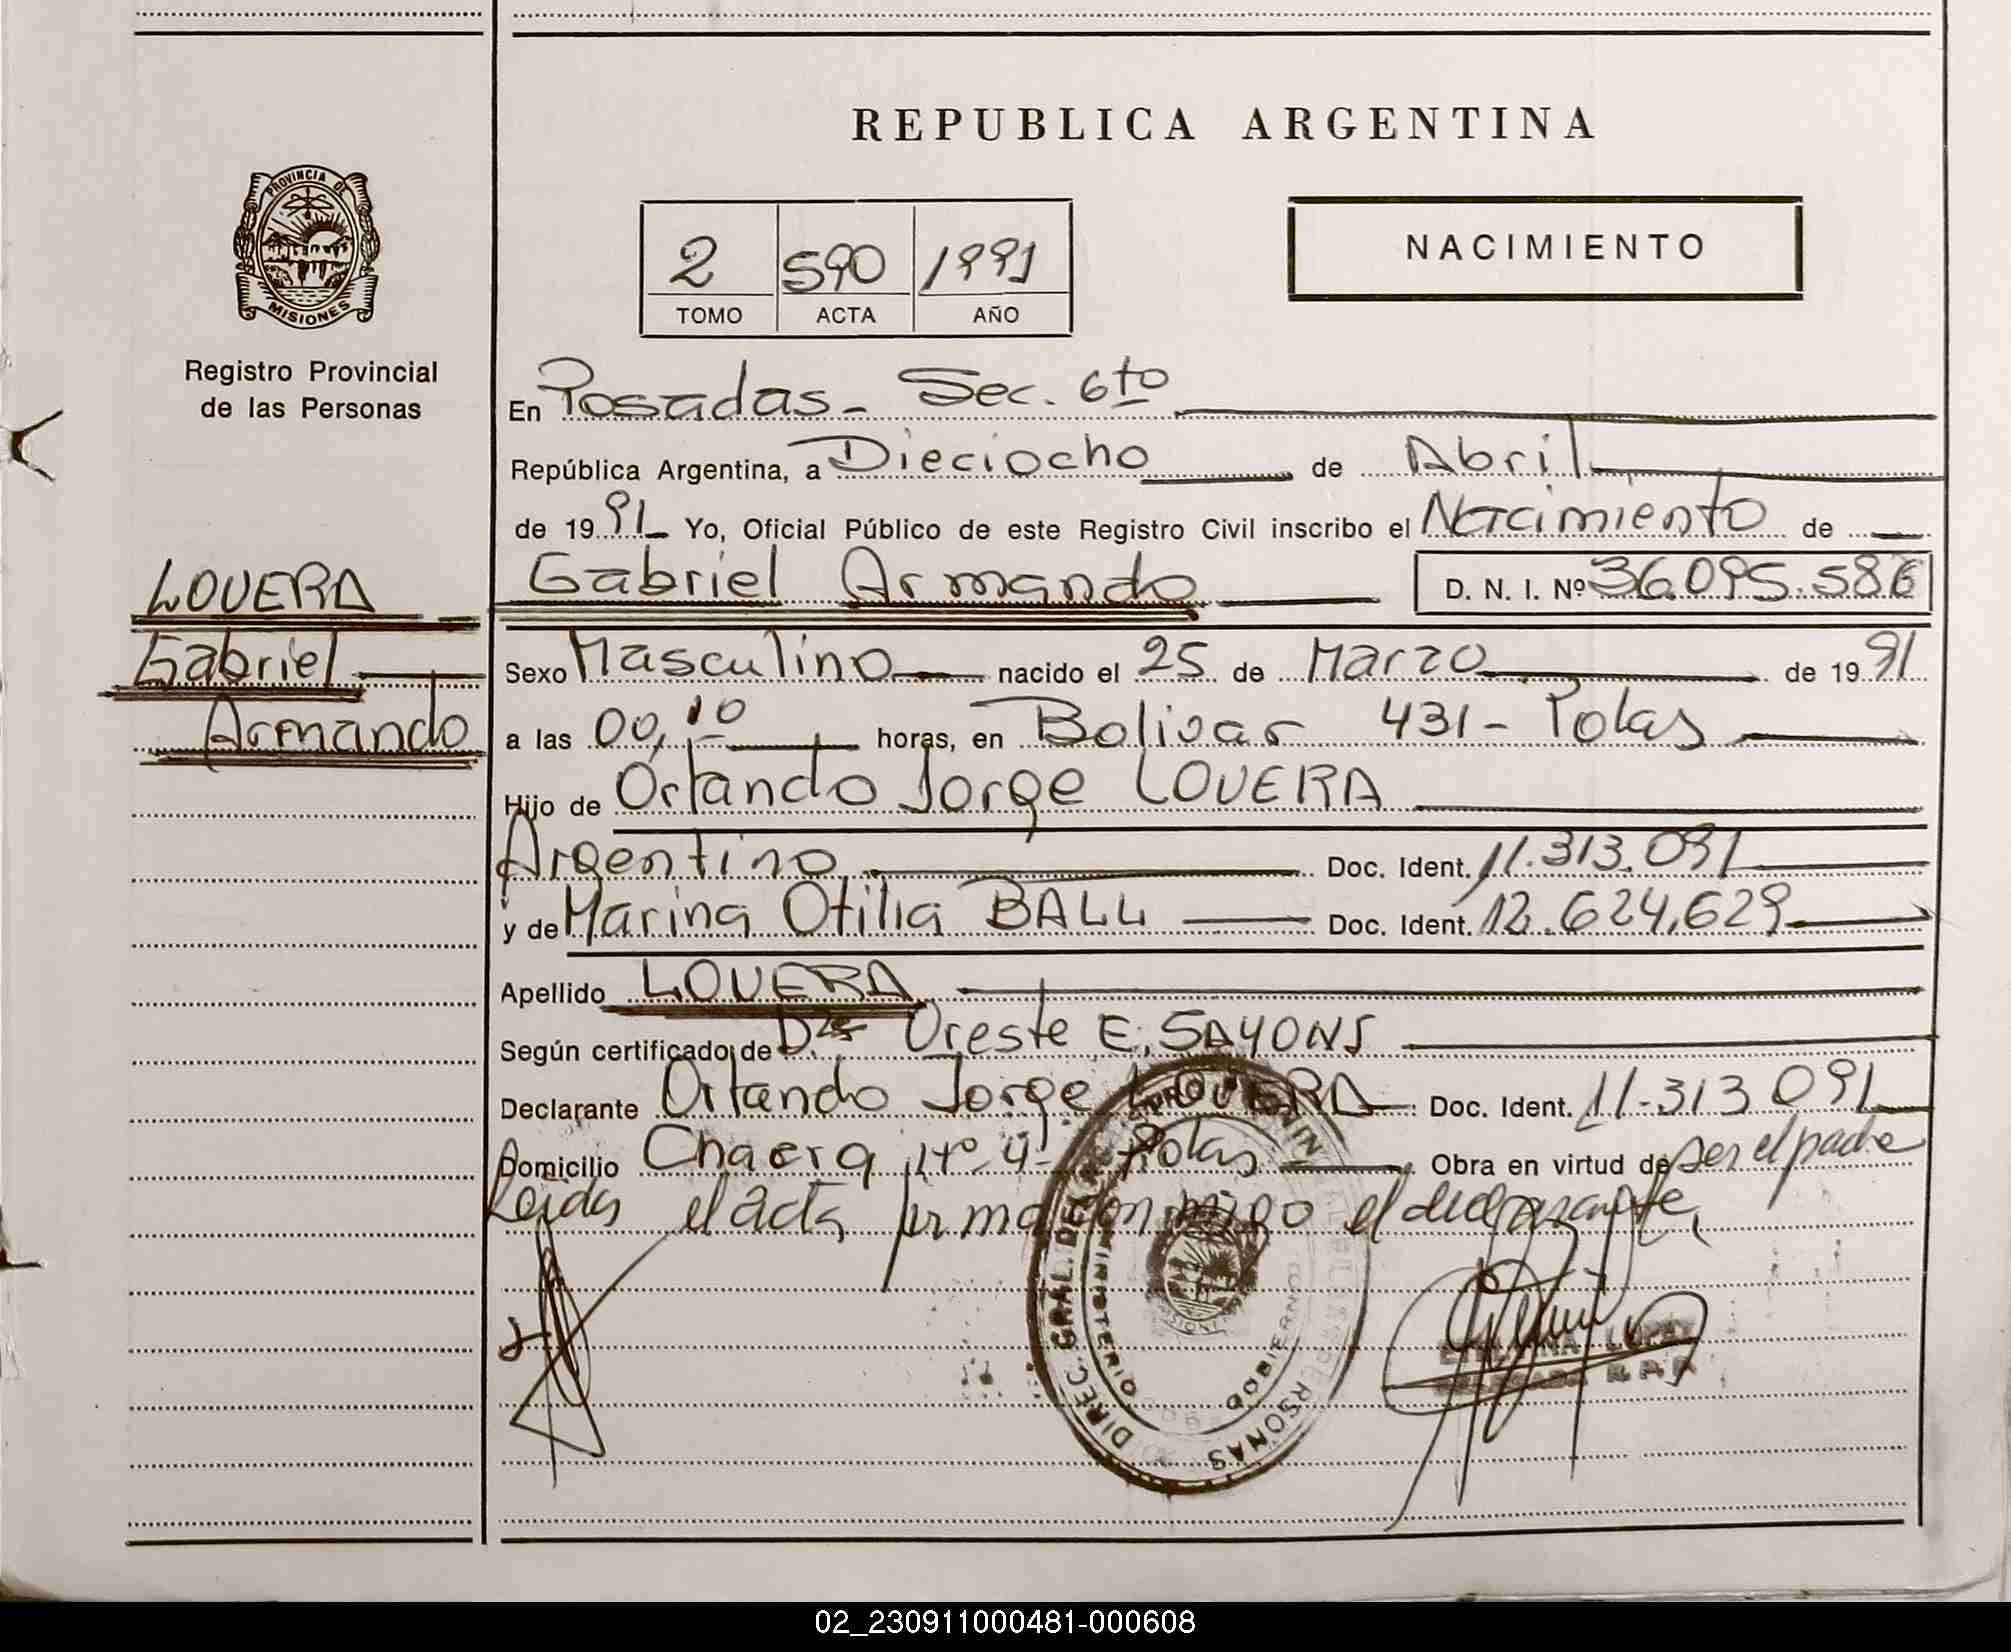 REPUBLICA ARGENTINA
PROVINCIA DE
MISIONES
2 590 1991
TOMO ACTA AÑO
NACIMIENTO
Registro Provincial
de las Personas
LOVERA
Gabriel
Armando
En Posadas - Sec. 6to
República Argentina, a Dieciocho de Abril
de 1991 Yo, Oficial Público de este Registro Civil inscribo el Nacimiento de
Gabriel Armando D. N. I. Nº 36.095.586
Sexo Masculino nacido el 25 de Marzo de 1991
a las 00,10 horas, en Bolivar 431 - Pdas
Hijo de Orlando Jorge LOVERA
Argentino Doc. Ident. 11.313.091
y de Marina Otilia BALL Doc. Ident. 12.624.629
Apellido LOVERA
Según certificado de Oreste E. SAYONS
Declarante Orlando Jorge LOVERA Doc. Ident. 11-313 091
Domicilio Nº 4 - Pdas Obra en virtud de ser el padre
Leida el acta firma conmigo el declarante,
DIREC. GRAL. DE PERSONAS
MINISTERIO GOBIERNO
02_230911000481-000608